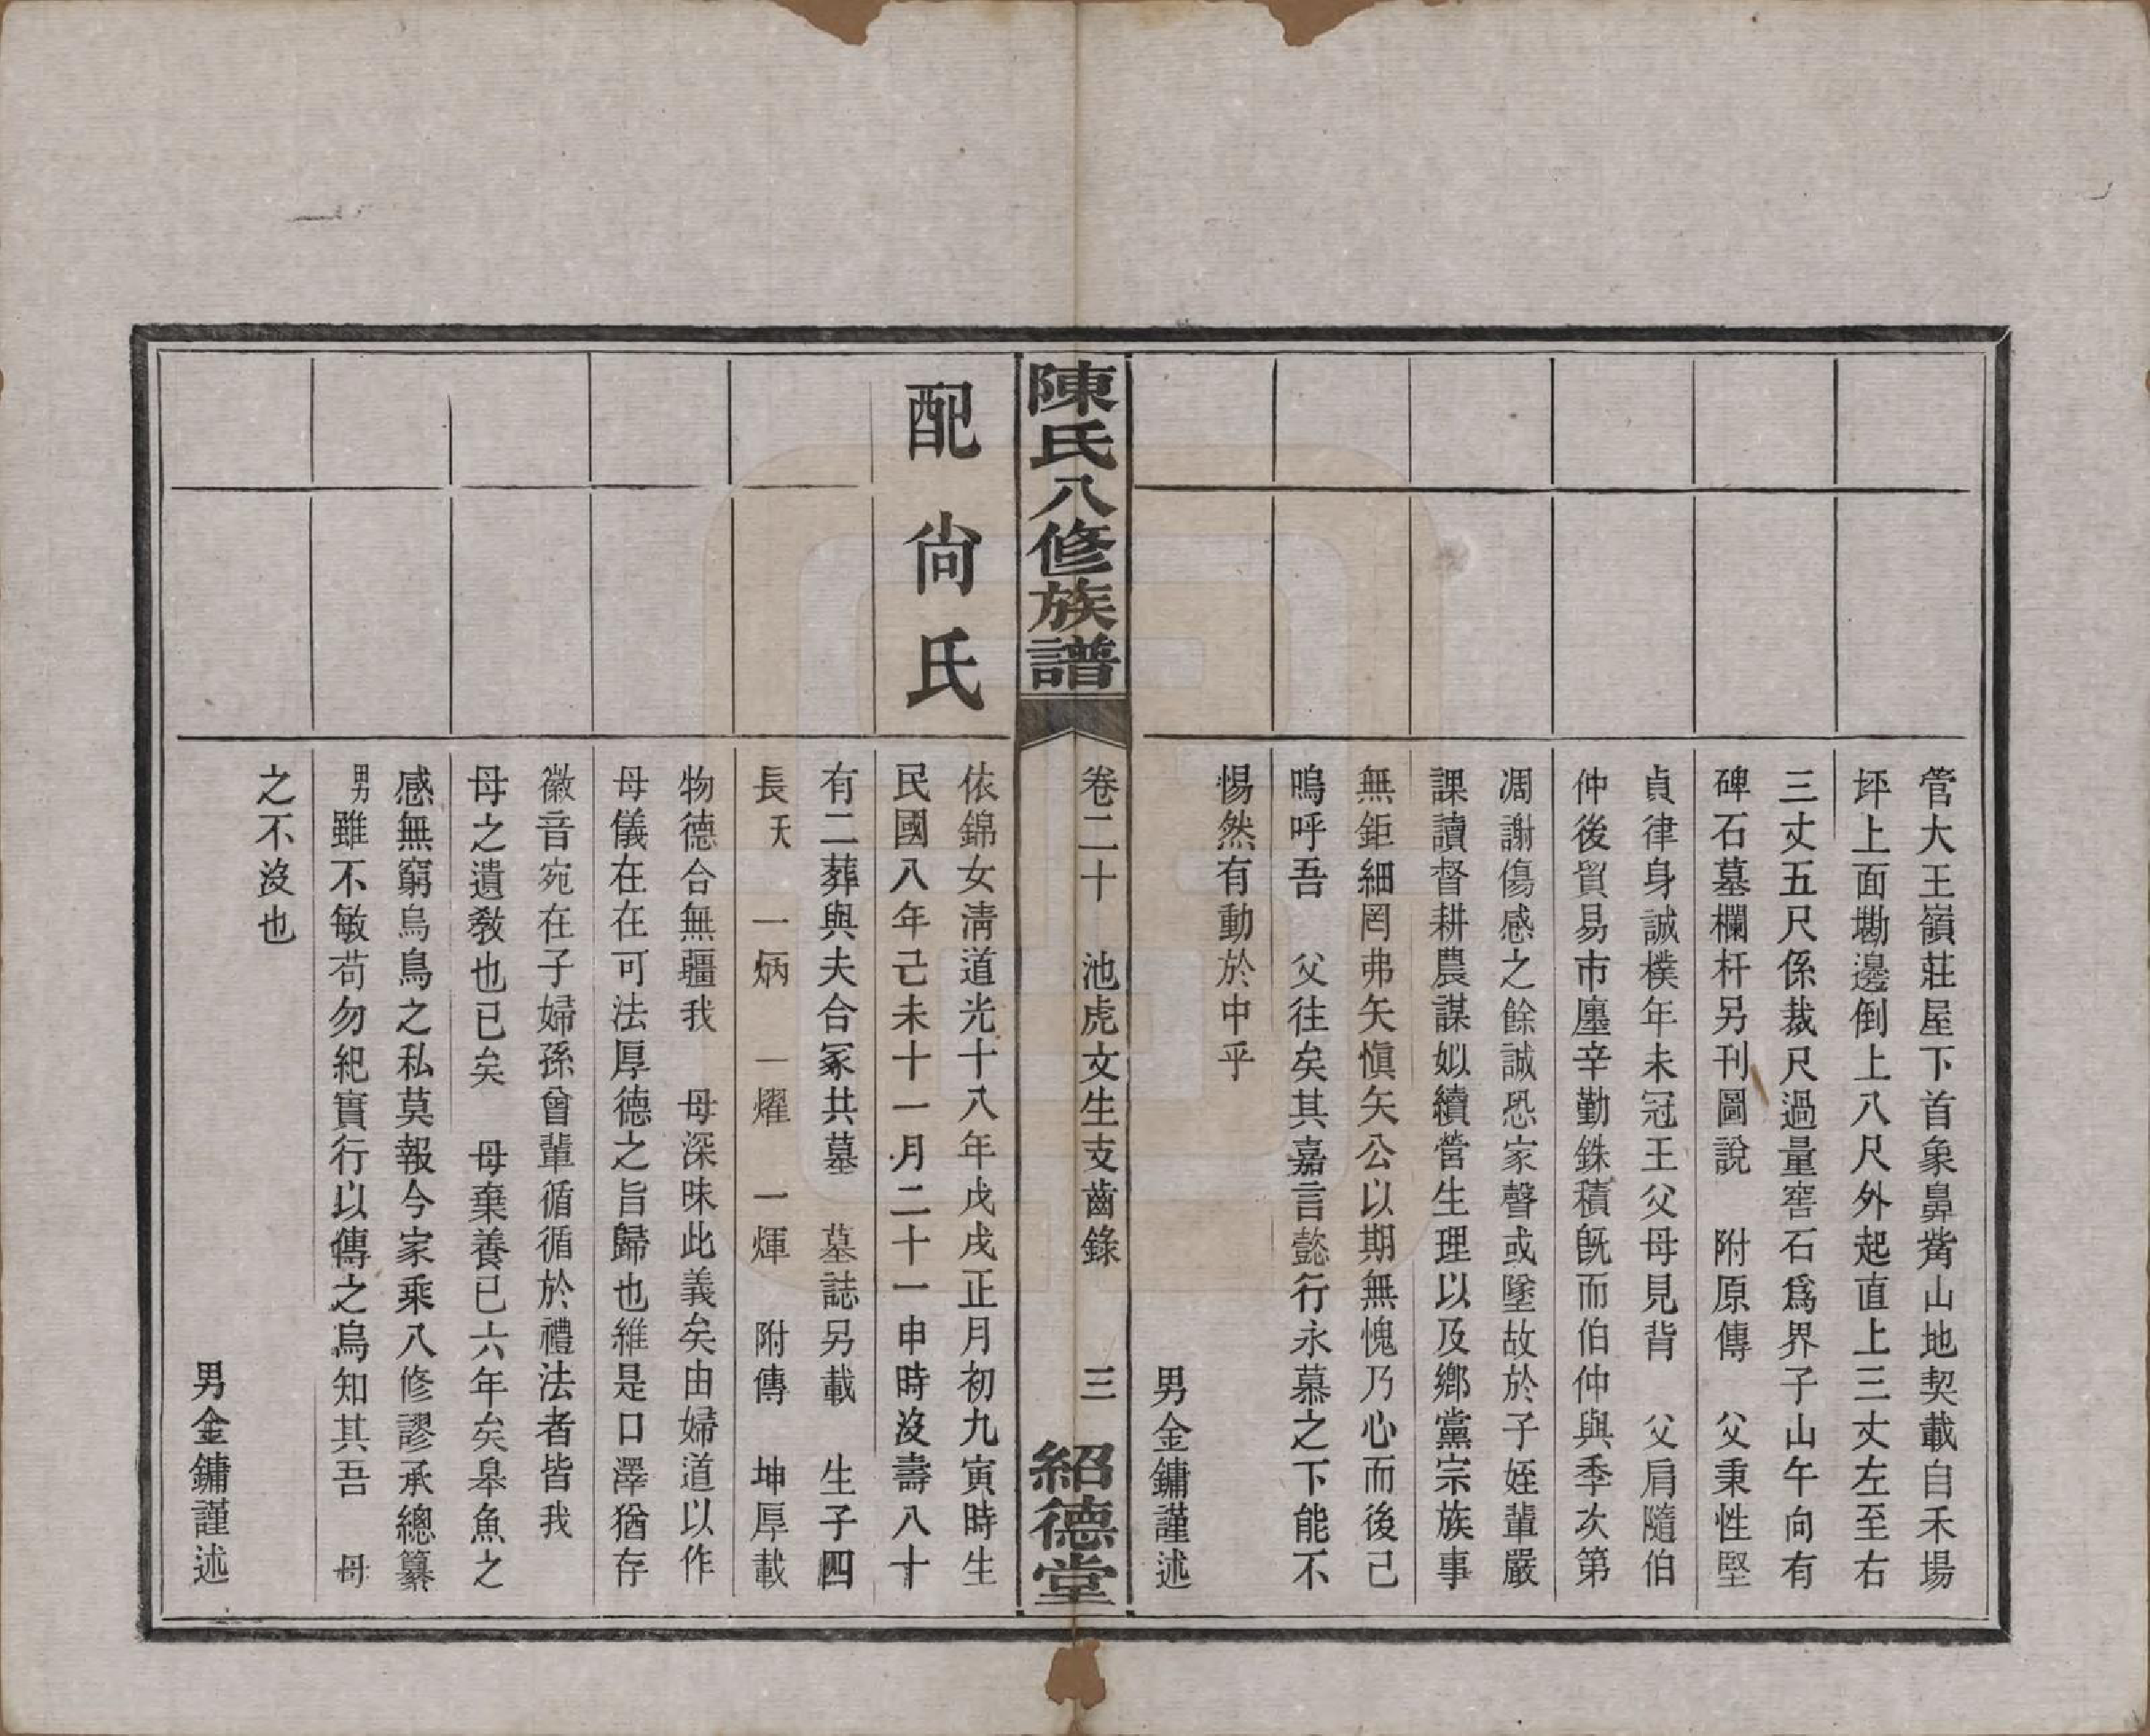 管大王嶺莊屋下首象鼻觜山地契載自禾場
坪上面墈邊倒上八尺外起直上三丈左至右
三丈五尺係裁尺過量窖石爲界子山午向有
碑石墓欄杆另刊圖說　附原傳　父秉性堅
貞律身誠樸年未冠王父母見背　父肩隨伯
仲後貿易市廛辛勤銖積旣而伯仲與季次第
凋謝傷感之餘誠恐家聲或墜故於子姪輩嚴
課讀督耕農謀姒續營生理以及鄕黨宗族事
無鉅細罔弗矢愼矢公以期無愧乃心而後已
嗚呼吾　父往矣其嘉言懿行永慕之下能不
惕然有動於中乎
男金鏞謹述
陳氏八修族譜
卷二十　池虎文生支齒錄　三
紹德堂
配尙氏
依錦女淸道光十八年戊戌正月初九寅時生
民國八年己未十一月二十一申時沒壽八十
有二葬與夫合冢共墓　墓誌另載　生子四
長夭　一炳　一燿　一煇　附傳　坤厚載
物德合無疆我　母深昧此義矣由婦道以作
母儀在在可法厚德之旨歸也維是口澤猶存
徽音宛在子婦孫曾輩循循於禮法者皆我
母之遺敎也已矣　母棄養已六年矣皋魚之
感無窮烏鳥之私莫報今家乘八修謬承總纂
男雖不敏苟勿紀實行以傳之烏知其吾　母
之不沒也
男金鏞謹述